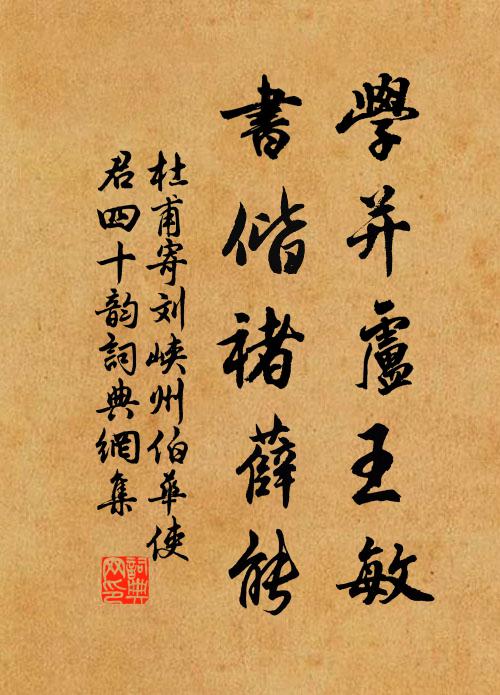 學并盧王敏
書偕褚薛能
杜甫寄刘峽州伯華使
君四十韵詞典網集
詞典
网印